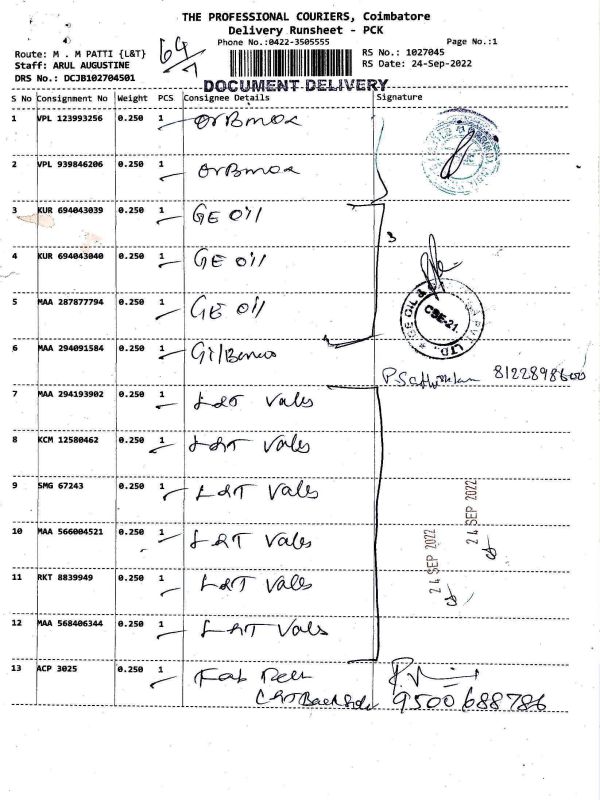 THE PROFESSIONAL COURIERS, Coimbatore
Delivery Runsheet - PCK
Phone No.:0422-3505555
Page No.:1
Route: M . M PATTI {L&T}
Staff: ARUL AUGUSTINE
DRS No.: DCJB102704501
64
RS No.: 1027045
RS Date: 24-Sep-2022
DOCUMENT DELIVERY
S No Consignment No Weight PCS Consignee Details Signature
1 VPL 123993256 0.250 1
2 VPL 939846206 0.250 1
3 KUR 694043039 0.250 1 GE Oil
3
4 KUR 694043040 0.250 1 GE Oil
5 MAA 287877794 0.250 1 GE Oil
CBE-21.
6 MAA 294091584 0.250 1
7 MAA 294193902 0.250 1 L&T Vales
8 KCM 12580462 0.250 1 L&T Vales
9 SMG 67243 0.250 1 L&T Vales
24 SEP 2022
24 SEP 2022
10 MAA 566004521 0.250 1 L&T Vales
11 RKT 8839949 0.250 1 L&T Vales
12 MAA 568406344 0.250 1 L&T Vals
13 ACP 3025 0.250 1
9500688786